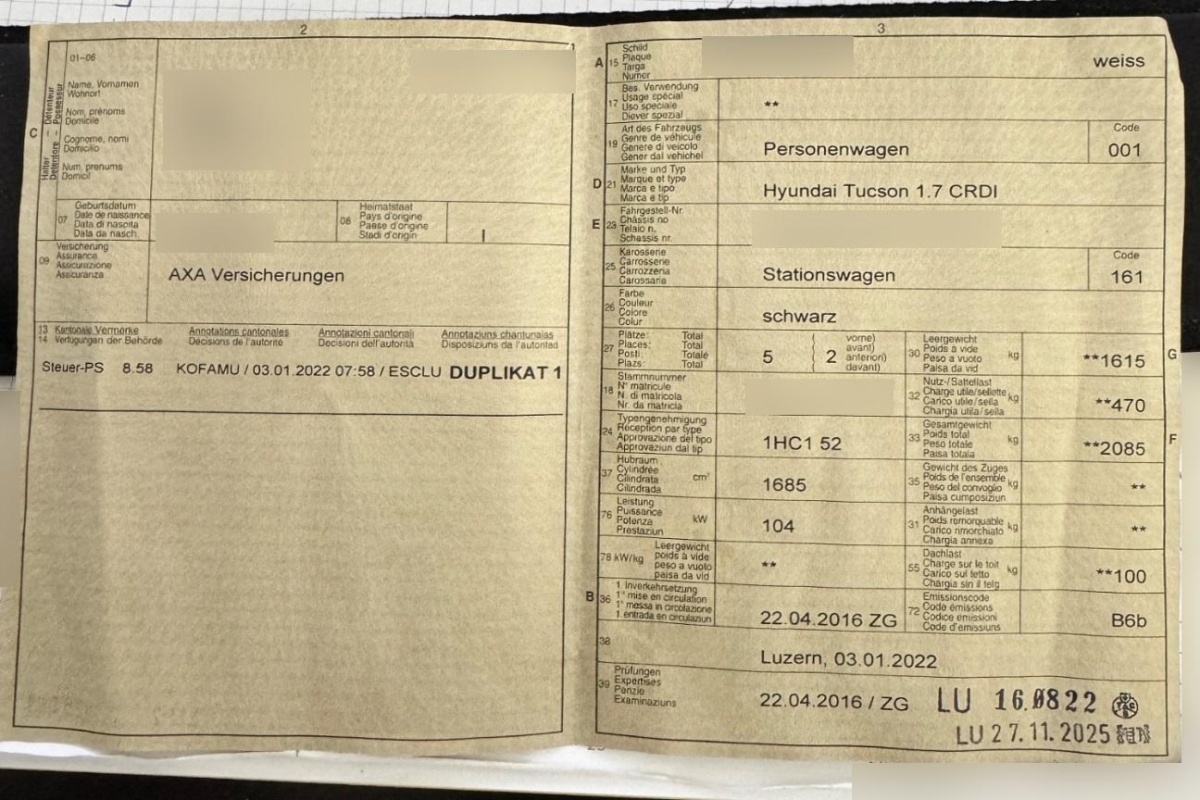 2
01-06
C
Halter Détenteur
Detentore Possessur
Name, Vornamen
Wohnort
Nom, prénoms
Domicile
Cognome, nomi
Domicilio
Num, prenums
Domicil
07
Geburtsdatum
Date de naissance
Data di nascita
Data da nasch.
08
Heimatstaat
Pays d'origine
Paese d'origine
Stadi d'origin
09
Versicherung
Assurance
Assicurazione
Assicuranza
AXA Versicherungen
13 Kantonale Vermerke Annotations cantonales Annotazioni cantonali Annotaziuns chantunalas
14 Verfügungen der Behörde Décisions de l'autorité Decisioni dell'autorità Disposiziuns da l'autoritad
Steuer-PS 8.58 KOFAMU / 03.01.2022 07:58 / ESCLU DUPLIKAT 1
3
A 15
Schild
Plaque
Targa
Numer
weiss
17
Bes. Verwendung
Usage spécial
Uso speciale
Diever spezial
**
19
Art des Fahrzeugs
Genre de véhicule
Genere di veicolo
Gener dal vehichel
Personenwagen
Code
001
D 21
Marke und Typ
Marque et type
Marca e tipo
Marca e tip
Hyundai Tucson 1.7 CRDI
E 23
Fahrgestell-Nr.
Châssis no
Telaio n.
Schassis nr.
25
Karosserie
Carrosserie
Carrozzeria
Carossaria
Stationswagen
Code
161
26
Farbe
Couleur
Colore
Colur
schwarz
27
Plätze: Total
Places: Total
Posti: Totale
Plazs: Total
5
2
vorne)
avant)
anteriori)
davant)
30
Leergewicht
Poids à vide
Peso a vuoto
Paisa da vid
kg
**1615
G
18
Stammnummer
N° matricule
N. di matricola
Nr. da matricla
32
Nutz-/Sattellast
Charge utile/sellette
Carico utile/sella
Chargia utila/sella
kg
**470
24
Typengenehmigung
Réception par type
Approvazione del tipo
Approvaziun dal tip
1HC1 52
33
Gesamtgewicht
Poids total
Peso totale
Paisa totala
kg
**2085
F
37
Hubraum
Cylindrée
Cilindrata
Cilindrada
cm³
1685
35
Gewicht des Zuges
Poids de l'ensemble
Peso del convoglio
Paisa cumposiziun
kg
**
76
Leistung
Puissance
Potenza
Prestaziun
kW
104
31
Anhängelast
Poids remorquable
Carico rimorchiato
Chargia annexa
kg
**
78 kW/kg
Leergewicht
poids à vide
peso a vuoto
paisa da vid
**
55
Dachlast
Charge sur le toit
Carico sul tetto
Chargia sin il tetg
kg
**100
B 36
1. Inverkehrsetzung
1re mise en circulation
1a messa in circolazione
1. entrada en circulaziun
22.04.2016 ZG
72
Emissionscode
Code émissions
Codice emissioni
Code d'emissiuns
B6b
38
Luzern, 03.01.2022
39
Prüfungen
Expertises
Perizie
Examinaziuns
22.04.2016 / ZG LU 16.0822
LU 27.11.2025